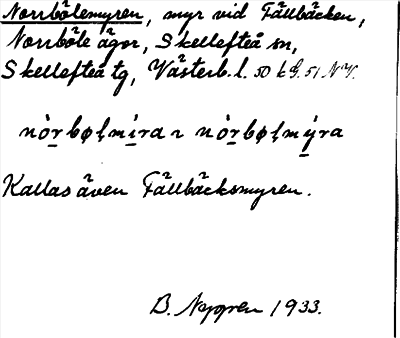 Norrbölemyren, myr vid Fällbäcken,
Norrböle ägor, Skellefteå sn,
Skellefteå tg, Västerb. l. 50 k G. 51 N.V.
nòrbøḷmira ~ nòrbøḷmýra
Kallas även Fällbäcksmyren.
B. Nygren 1933.